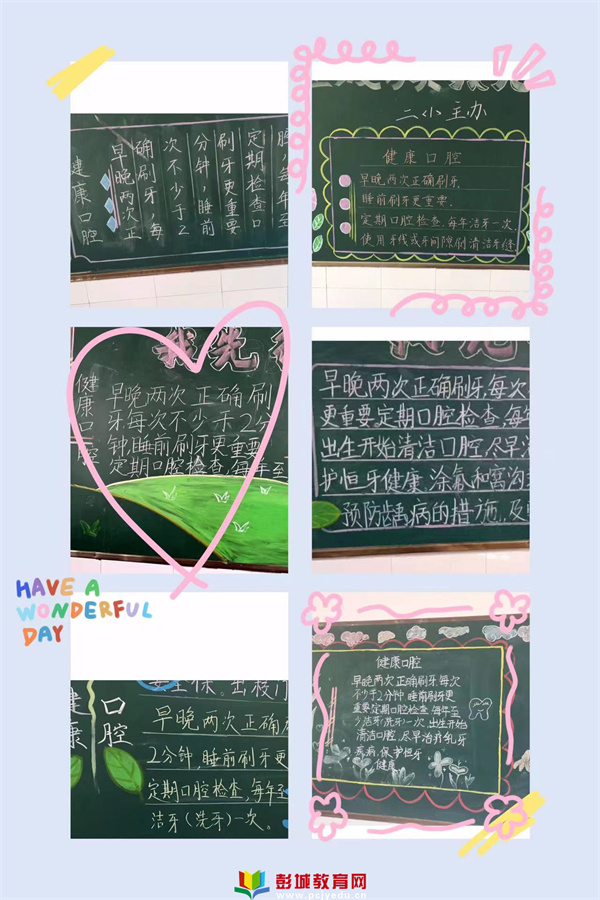 健康口腔
早晚两次正
确刷牙,每
次不少于2
分钟,睡前
刷牙更重要
定期检查口
腔,每年至
二小主办
健康口腔
早晚两次正确刷牙.
睡前刷牙更重要.
定期口腔检查,每年洁牙一次.
使用牙线或牙间隙刷清洁牙缝
我先
健康口腔
早晚两次正确刷
牙,每次不少于2分
钟,睡前刷牙更重要
定期口腔检查,每年至
早晚两次正确刷牙,每次
更重要.定期口腔检查,每
出生开始清洁口腔,尽早
护恒牙健康.涂氟和窝沟
预防龋病的措施.及
HAVE A
WONDERFUL
DAY
健康
口腔
早晚两次正确
2分钟,睡前刷牙更
定期口腔检查,每年至
洁牙(洗牙)一次。
健康口腔
早晚两次正确刷牙,每次
不少于2分钟.睡前刷牙更
重要定期口腔检查.每年至
少洁牙(洗牙)一次.出生开始
清洁口腔,尽早治疗乳牙
疾病,保护恒牙
健康
彭城教育网
www.pcjyedu.cn